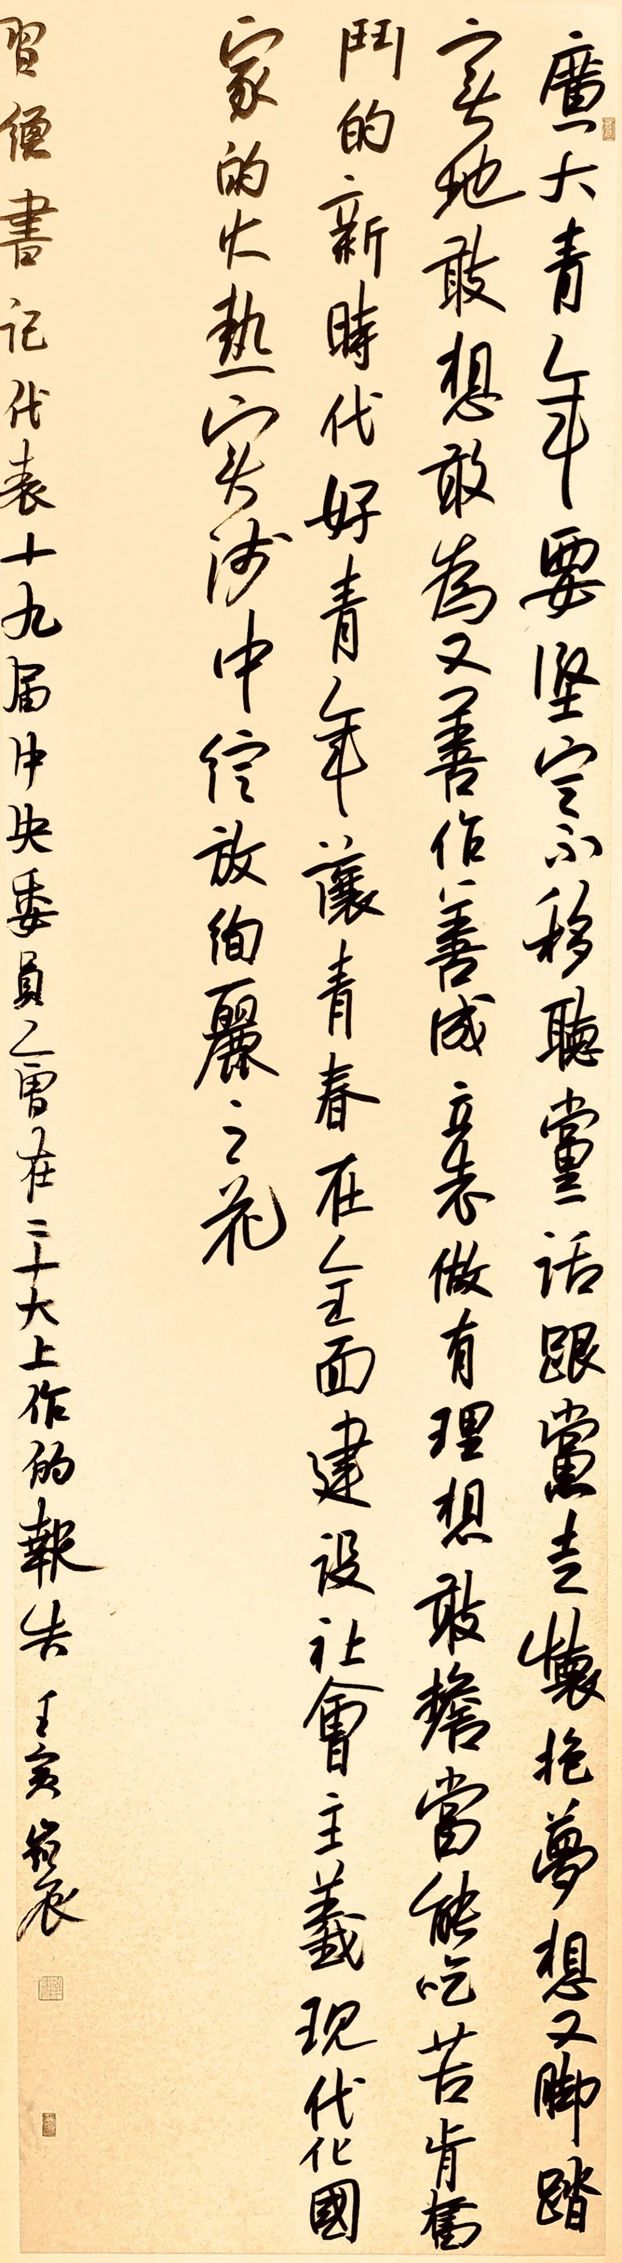 廣大青年要堅定不移聽黨話跟黨走懷抱夢想又脚踏
實地敢想敢為又善作善成立志做有理想敢擔當能吃苦肯奮
鬥的新時代好青年讓青春在全面建設社會主義現代化國
家的火熱實踐中綻放絢麗之花
習總書記代表十九届中央委員會在二十大上作的報告 壬寅